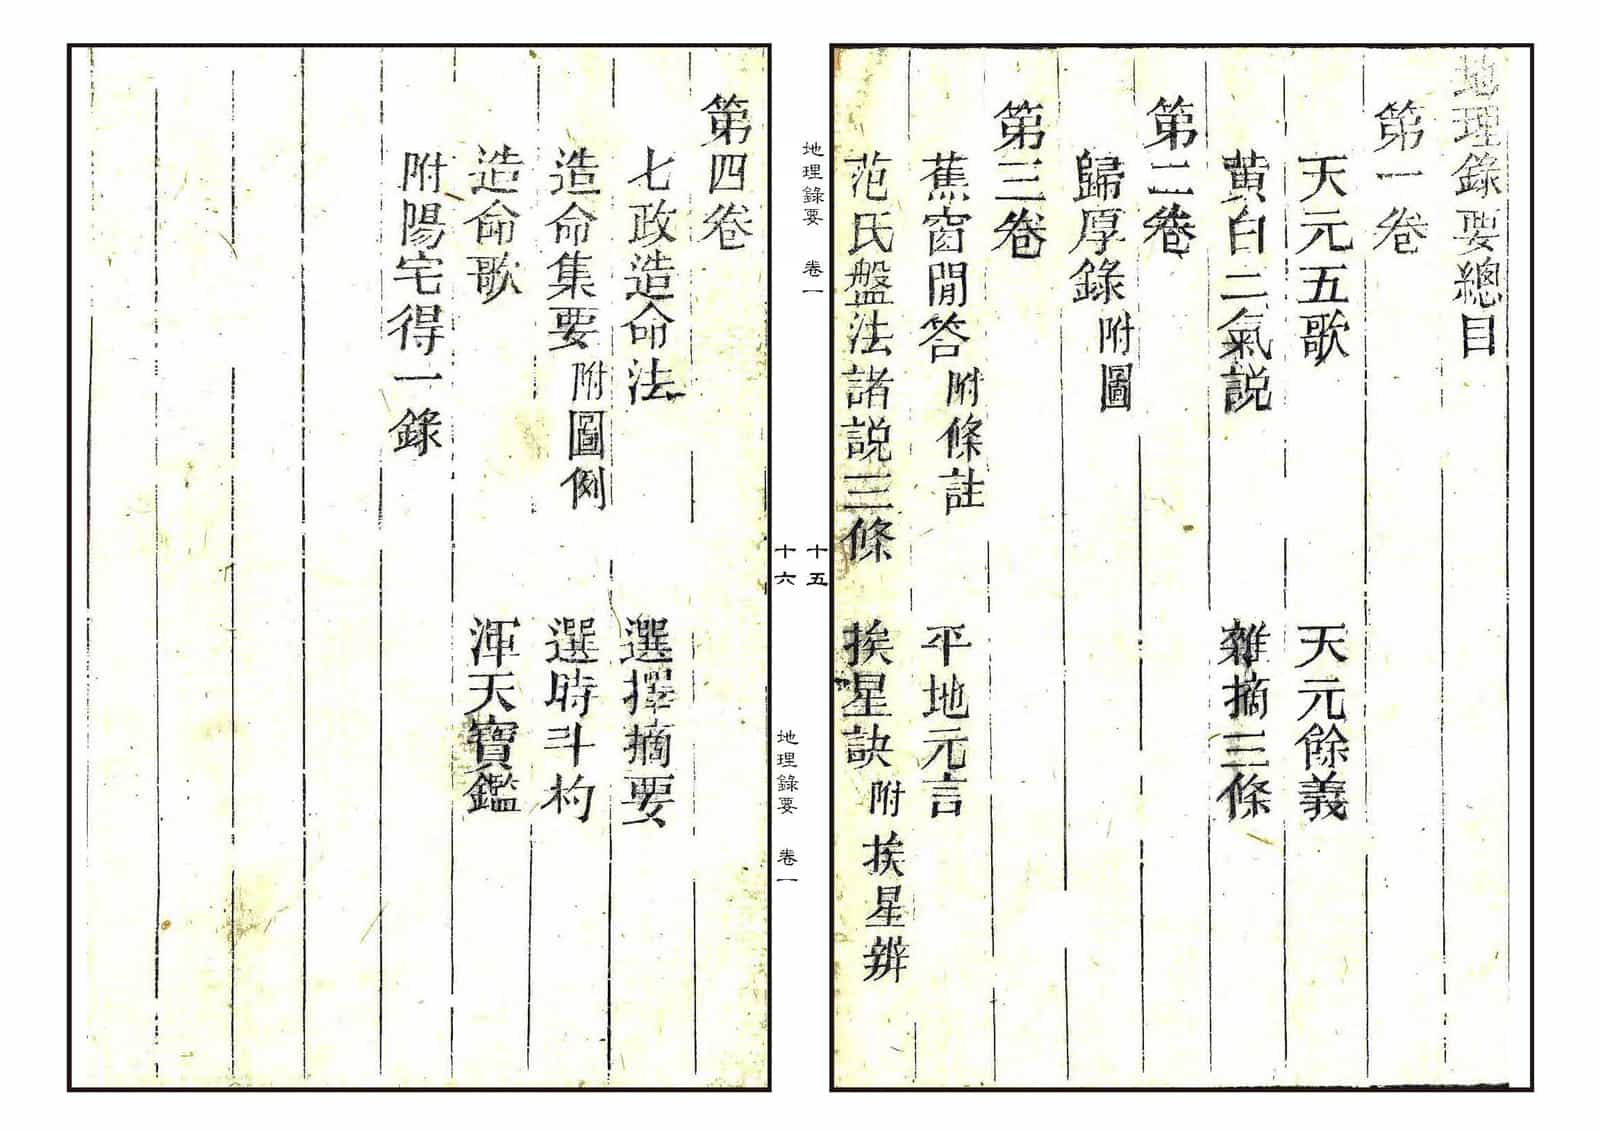 地理錄要總目
第一卷
天元五歌 天元餘義
黃白二氣説 雜摘三條
第二卷
歸厚錄 附圖
第三卷
蕉窗閒答 附條註 平地元言
范氏盤法諸説三條 挨星訣 附挨星辨
地理錄要 卷一
十五
十六
地理錄要 卷一
第四卷
七政造命法 選擇摘要
造命集要 附圖例 選時斗杓
造命歌 渾天寶鑑
附陽宅得一錄